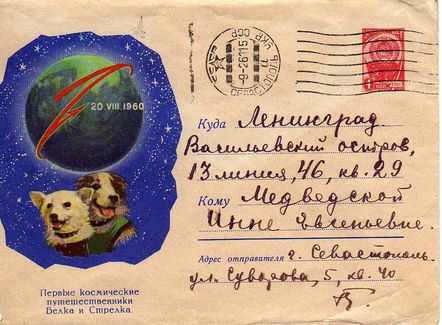 20.VIII 1960
Первые космические
путешественники
Белка и Стрелка.
СЕВАСТОПОЛЬ
УКР ССР
Куда Ленинград
Васильевский остров,
13 линия, 46, кв. 29
Кому Медведской
Инне Евгеньевне
Адрес отправителя г. Севастополь
ул. Суворова, 5, кв. 40